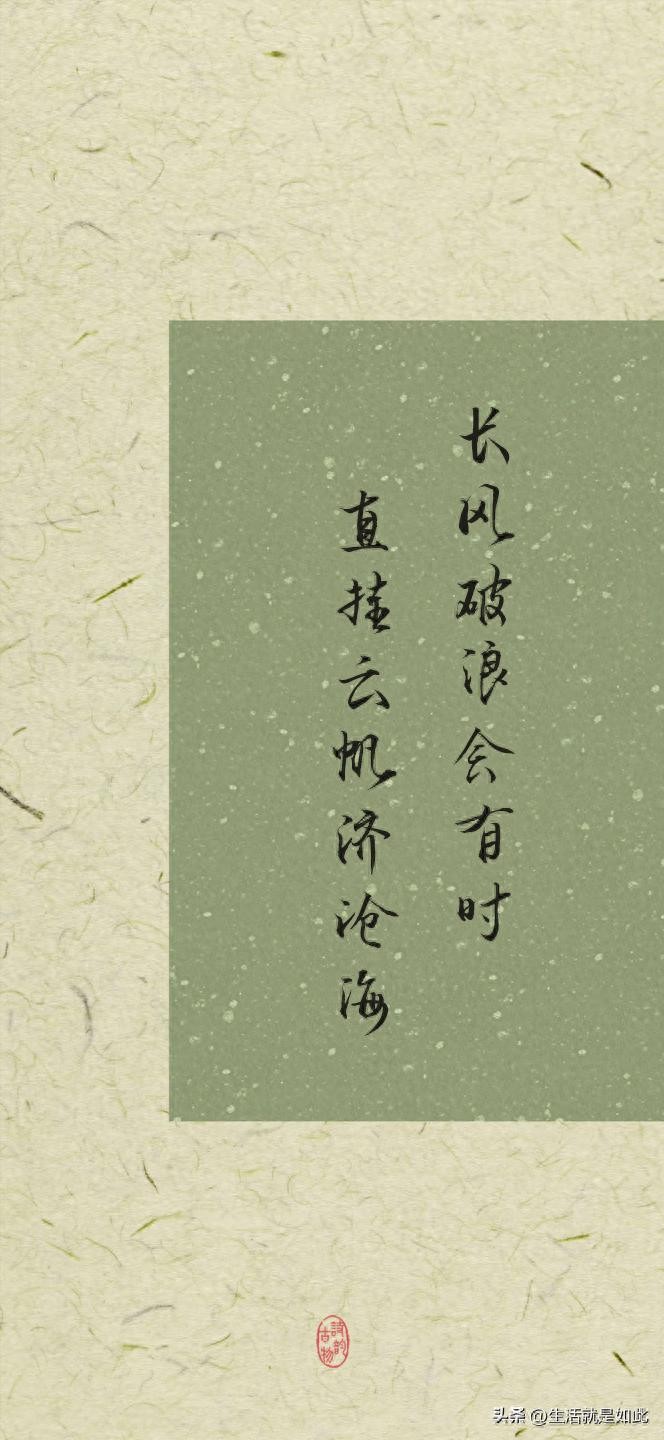 长风破浪会有时
直挂云帆济沧海
詩韵
古物
头条 @生活就是如此